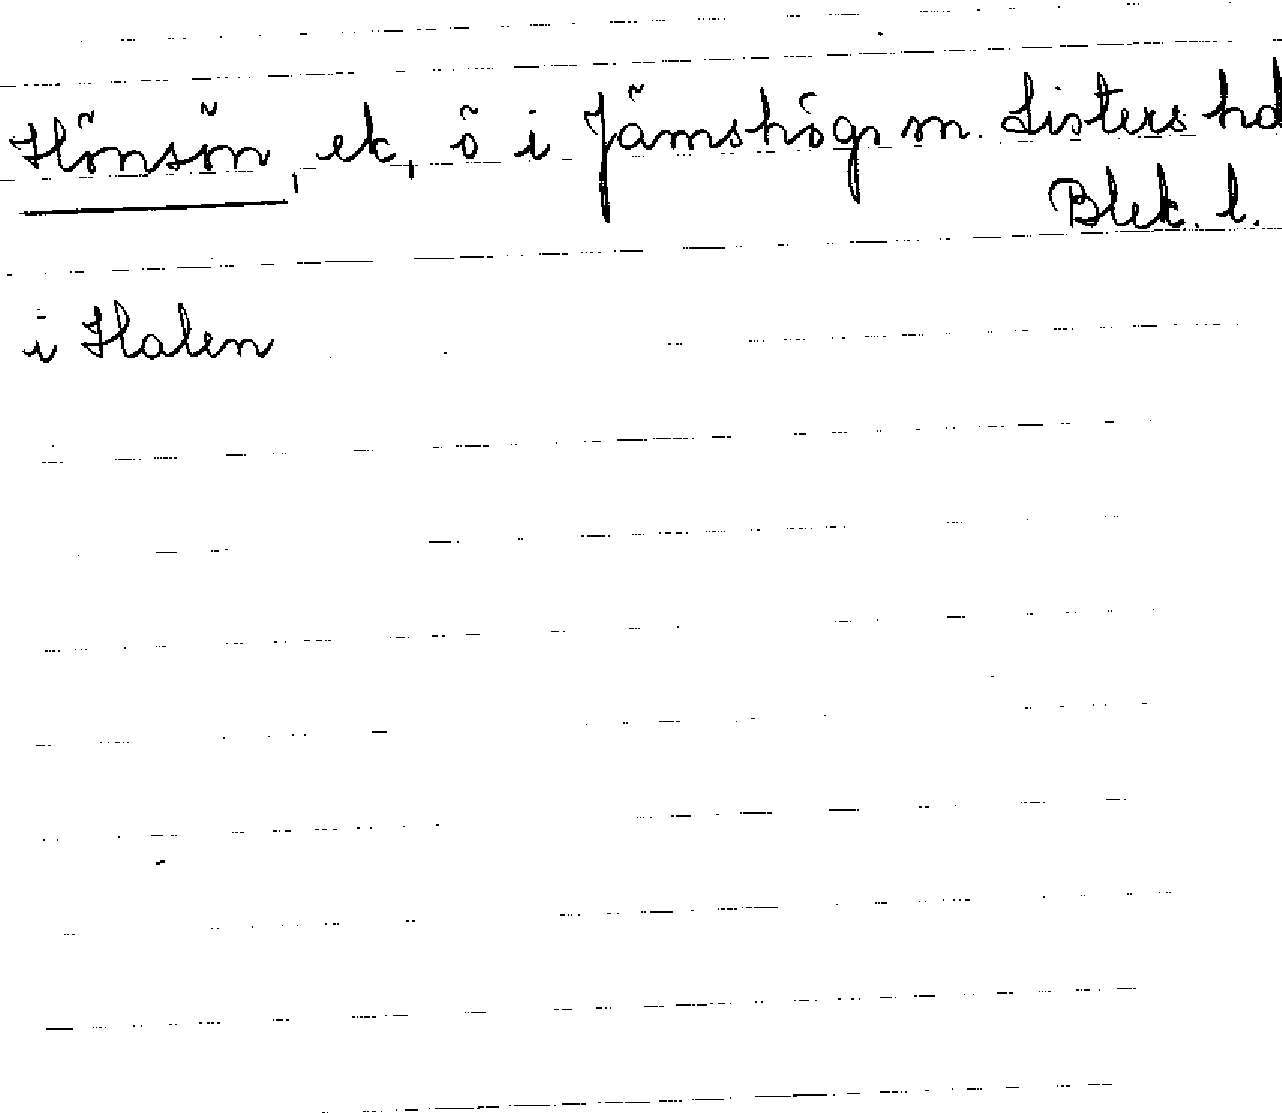 Hönsön, ek, ö i Jämshögs sn. Listers hd
Blek. l.
i Halen